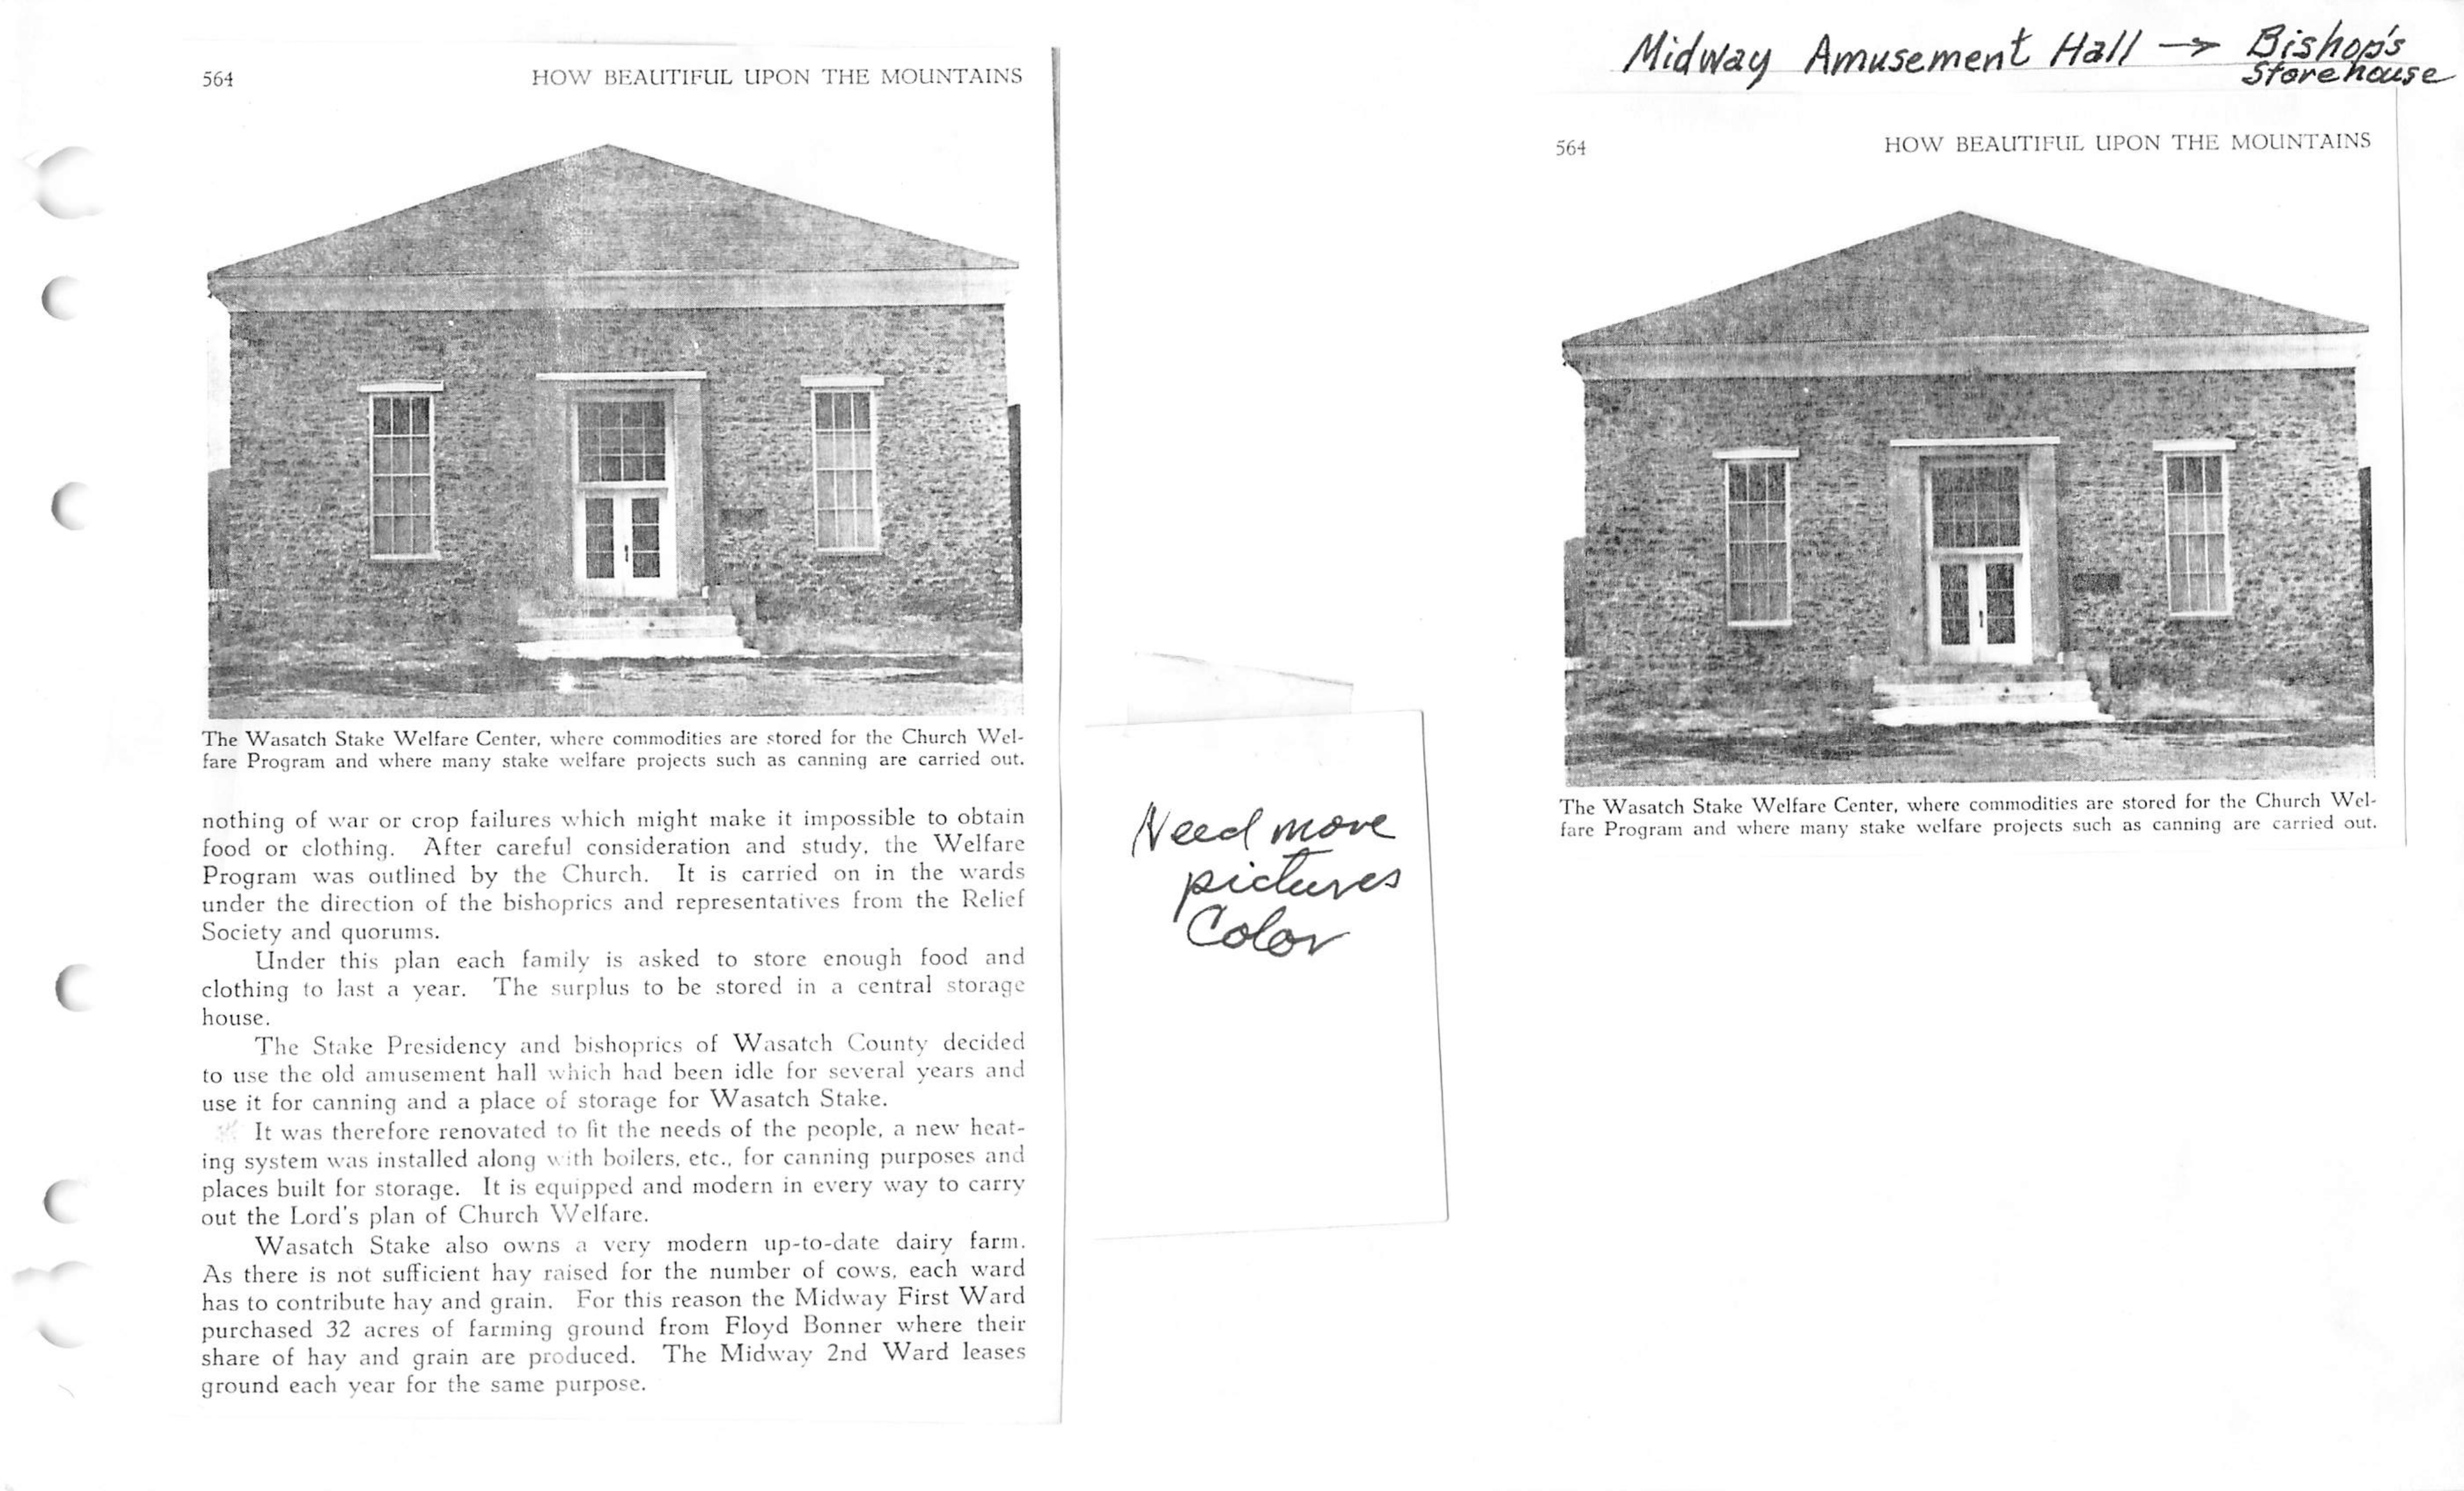 564 HOW BEAUTIFUL UPON THE MOUNTAINS
The Wasatch Stake Welfare Center, where commodities are stored for the Church Wel-
fare Program and where many stake welfare projects such as canning are carried out.
nothing of war or crop failures which might make it impossible to obtain
food or clothing. After careful consideration and study, the Welfare
Program was outlined by the Church. It is carried on in the wards
under the direction of the bishoprics and representatives from the Relief
Society and quorums.
Under this plan each family is asked to store enough food and
clothing to last a year. The surplus to be stored in a central storage
house.
The Stake Presidency and bishoprics of Wasatch County decided
to use the old amusement hall which had been idle for several years and
use it for canning and a place of storage for Wasatch Stake.
It was therefore renovated to fit the needs of the people, a new heat-
ing system was installed along with boilers, etc., for canning purposes and
places built for storage. It is equipped and modern in every way to carry
out the Lord's plan of Church Welfare.
Wasatch Stake also owns a very modern up-to-date dairy farm.
As there is not sufficient hay raised for the number of cows, each ward
has to contribute hay and grain. For this reason the Midway First Ward
purchased 32 acres of farming ground from Floyd Bonner where their
share of hay and grain are produced. The Midway 2nd Ward leases
ground each year for the same purpose.
Need more
pictures
Color
Midway Amusement Hall → Bishop's
Storehouse
564 HOW BEAUTIFUL UPON THE MOUNTAINS
The Wasatch Stake Welfare Center, where commodities are stored for the Church Wel-
fare Program and where many stake welfare projects such as canning are carried out.